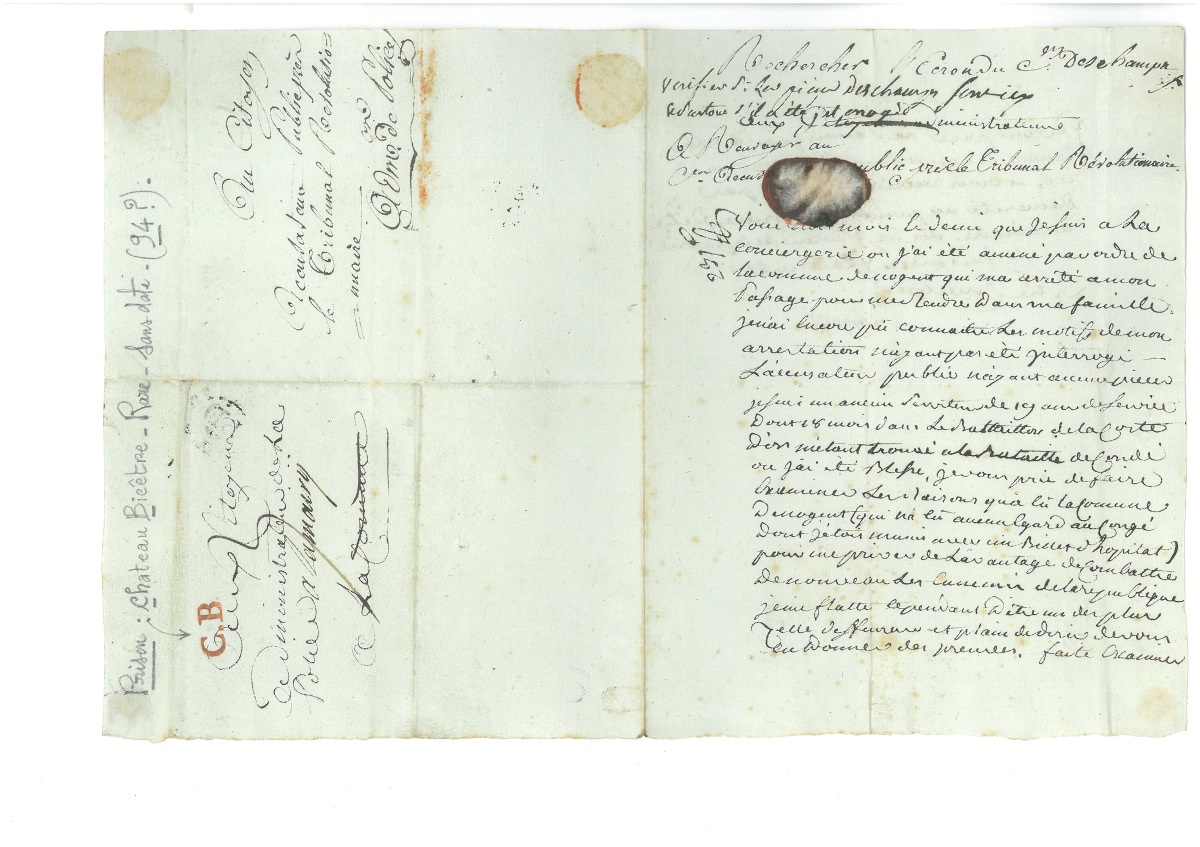 Prison : Chateau Bicêtre - Rare - Sans date - (94?).
Au Citoyen
Accusateur Public près
le Tribunal Révolutio=
=nnaire
Aux Citoyens
administrateurs de la
Police a la mairie
A La Commune
C.B
Rechercher l'Ecrou du Cen Deschamps
verifier si les pieces
Surtout s'il a été interrogé
aux Citoyens administrateurs
A Renvoyer au
Cen Accus public près le Tribunal Révolutionaire.
Voici mois le demi que Jesuis a La
conciergerie ou j'ai été amené par ordre de
lacommune denogent qui ma arrété amon
Passage pour me Rendre Dans ma famille,
jenai Encore pû connaitre Les motifs de mon
arrestation n'ayant pas été jnterrogé —
L'accusateur public n'ayant aucune pieces
jesui un ancien Serviteur de 19 ans de Service
Dont 18 mois dans Le Bataillon de la Corte
D'or métant trouvé a la Bataille de Condé
ou j'ai été Blessé, je vous prie de faire
Examiner Les Raisons qu'a Eû la Comune
De nogent (qui na Eû aucun Egard au Congé
Dont j'étois muni avec un Billet d'hopital)
pour me priver de L'avantage de Combattre
De nouveau Les Ennemis de la republique
jeme flatte cependant D'être un des plus
Zellé deffenseur et plain de desir de vous
En Donner des preuves. faite Examiner